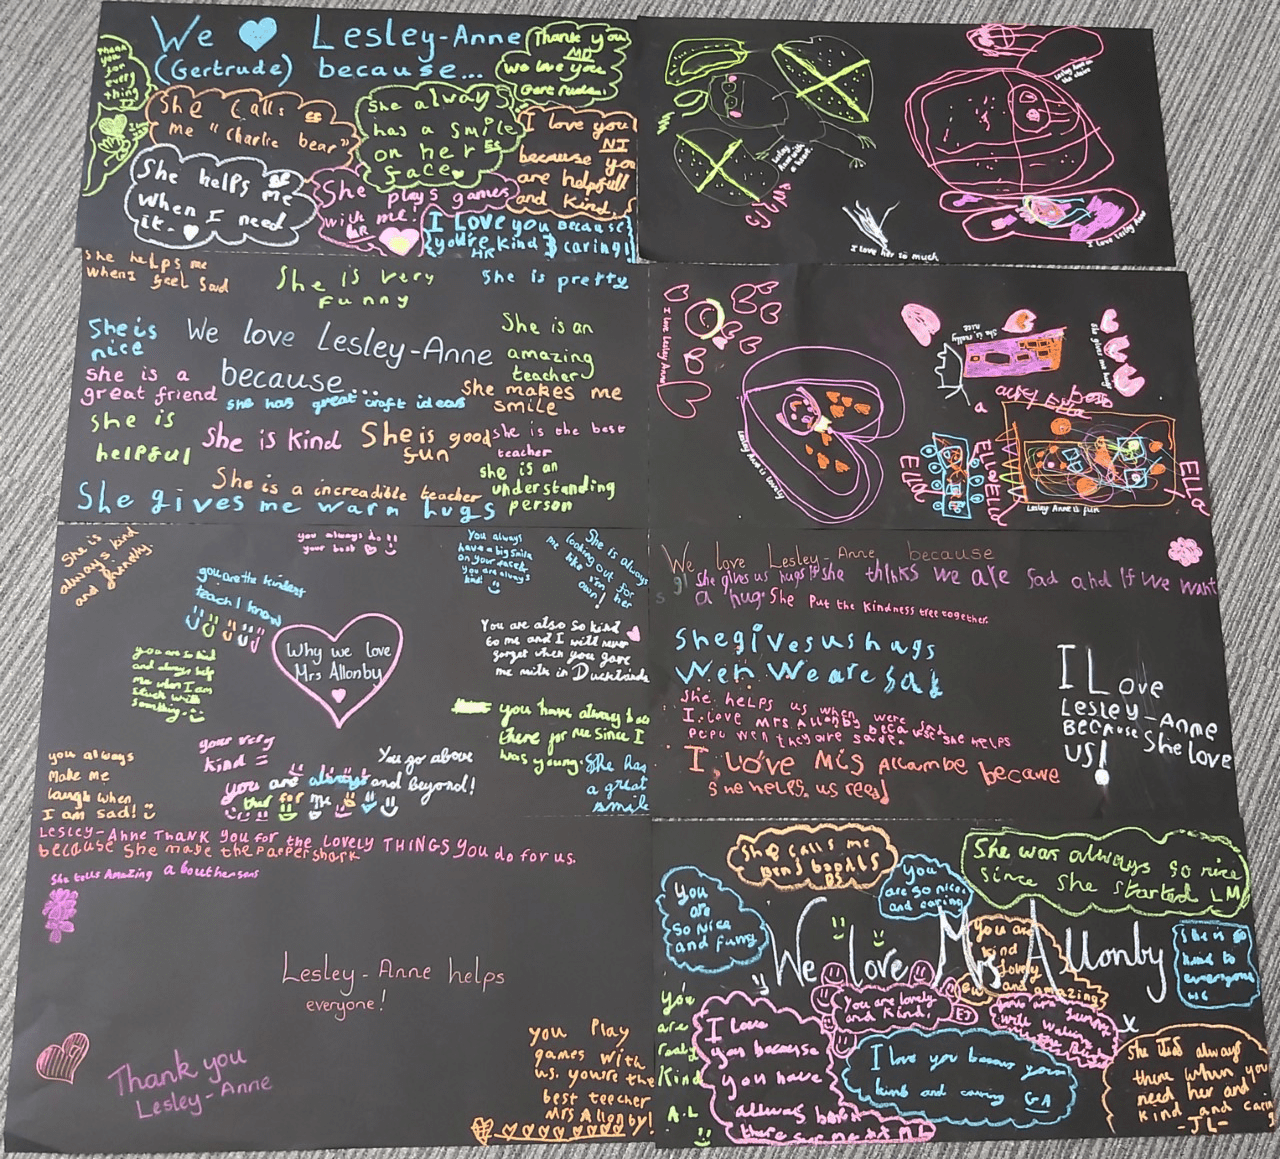 We Lesley-Anne
(Gertrude) because...
Thank
you
for
every
thing
Thank you
MD
We love you
She calls
me "Charlie bear"
She always
has a smile
on her
face
I love you
NI
because you
are helpfull
and kind.
She helps me
When I need
it.
She plays games
with me!
I LOVE you because
you're kind & caring!
HR
Lesley
Anne with
a heart
I love her so much
Lesley Anne on
the stairs
I love Lesley Anne
she helps me
when I feel sad
She is very
funny
She is pretty
She is
nice
We love Lesley-Anne
because...
She is an
amazing
teacher
She is a
great friend
she has great craft ideas
She makes me
smile
She is
helpful
She is kind
She is good
fun
She is the best
teacher
She is a increadible teacher
she is an
understanding
person
She gives me warm hugs
I love Lesley Anne
She is really
nice
Lesley Anne is lovely
ELLA
ELLA
Lesley Anne is fun
She is
always kind
and funny
you always do
your best
You always
have a big smile
on your face
You are always
kind!
She is always
looking out for
me like I'm her
own!
you are the kindest
teach I know
Why we love
Mrs Allonby
You are also so kind
to me and I will never
forget when you gave
me milk in Ducklands
you are so kind
and always help
me when I am
stuck with
something
you have always been
there for me since I
was young.
you always
Make me
laugh when
I am sad!
your very
kind
You go above
and beyond!
you are always
there for me
She has
a great
smile
We love Lesley-Anne because
she gives us hugs if she thinks we are sad and if we want
a hug. She put the kindness tree together.
She gives us hugs
Wen We are sad
She helps us when were sad
I love Mrs Allonby because she helps
pepul wen they are sade.
I love Mis Allambe becawe
she helps us reed
I Love
Lesley-Anne
because she love
us!
Lesley-Anne THANK YOU for the Lovely THINGS you do for us.
because She made the Paper shark
She tells Amazing
Lesley-Anne helps
everyone!
Thank you
Lesley-Anne
you Play
games with
us. you're the
best teecher
Mrs Allonby!
She calls me
You
are so nice
and caring
She was always so nice
since she started LM
You
are
so nice
and funny
We love Mrs Allonby
You are
kind
lovely
and amazing
She is so
kind to
everyone
You
are
realy
Kind
A.L
You are lovely
and kind!
EJ
I love
you because
you have
allways been
there for me
ML
I love you becaus your
kind and caring GA
She is always
there when you
need her and
kind and caring
-JL-